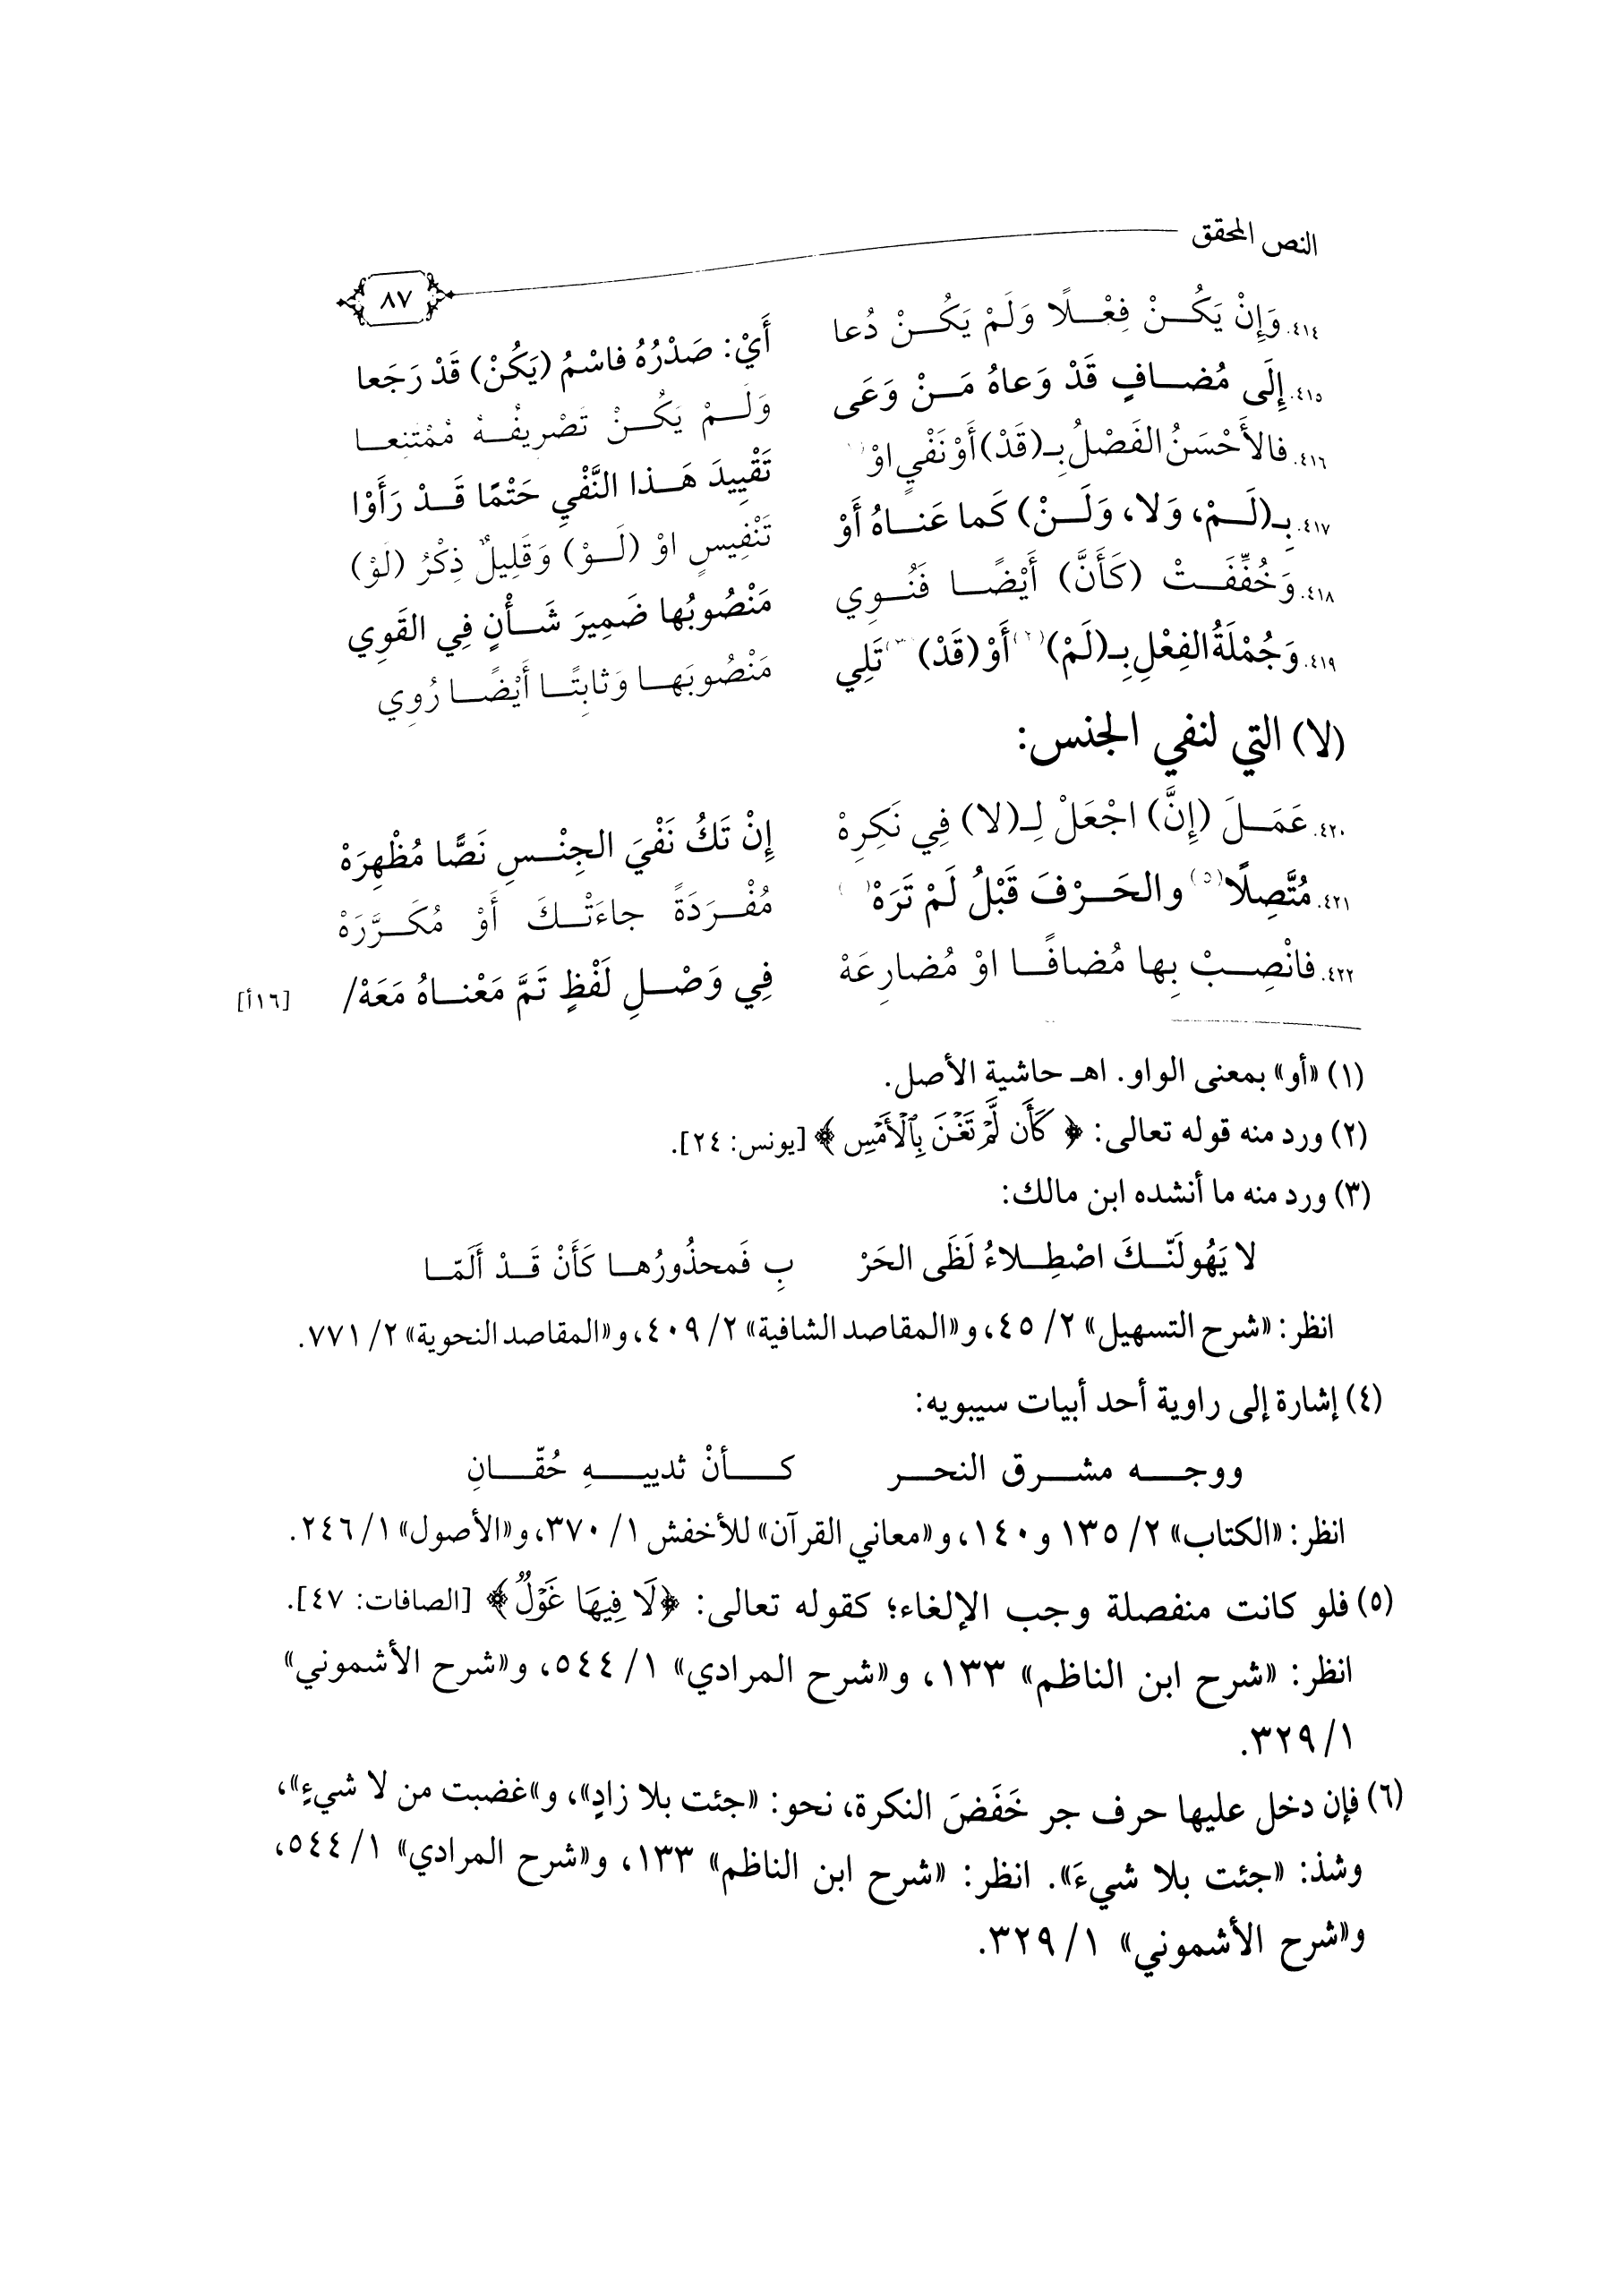 النص المحقق
٨٧
٤١٤. وَإِنْ يَكُنْ فِعْلًا وَلَمْ يَكُنْ دُعا أَيْ: صَدْرُهُ فاسْمُ (يَكُنْ) قَدْ رَجَعا
٤١٥. إِلَى مُضافٍ قَدْ وَعاهُ مَنْ وَعَى وَلَمْ يَكُنْ تَصْرِيفُهُ مُمْتَنِعا
٤١٦. فالأَحْسَنُ الفَصْلُ بِـ(قَدْ) أَوْ نَفْيٍ اوْ تَقْيِيدَ هَذا النَّفْيِ حَتْمًا قَدْ رَأَوْا
٤١٧. بِـ(لَمْ، وَلا، وَلَنْ) كَما عَناهُ أَوْ تَنْفِيسٍ اوْ (لَوْ) وَقَلِيلٌ ذِكْرُ (لَوْ)
٤١٨. وَخُفِّفَتْ (كَأَنَّ) أَيْضًا فَنُوِي مَنْصُوبُها ضَمِيرَ شَأْنٍ فِي القَوِي
٤١٩. وَجُمْلَةُ الفِعْلِ بِـ(لَمْ)(٢) أَوْ (قَدْ)(٣) تَلِي مَنْصُوبَها وَثابِتًا أَيْضًا رُوِي
(لا) التي لنفي الجنس:
٤٢٠. عَمَلَ (إِنَّ) اجْعَلْ لِـ(لا) فِي نَكِرِهْ إِنْ تَكُ نَفْيَ الجِنْسِ نَصًّا مُظْهِرَهْ
٤٢١. مُتَّصِلًا(٥) والحَرْفَ قَبْلُ لَمْ تَرَهْ مُفْرَدَةً جاءَتْكَ أَوْ مُكَرَّرَهْ
٤٢٢. فانْصِبْ بِها مُضافًا اوْ مُضارِعَهْ فِي وَصْلِ لَفْظٍ تَمَّ مَعْناهُ مَعَهْ/ [١٦أ]
(١) «أو» بمعنى الواو. اهـ حاشية الأصل.
(٢) ورد منه قوله تعالى: ﴿كَأَن لَّمْ تَغْنَ بِٱلْأَمْسِ﴾ [يونس: ٢٤].
(٣) ورد منه ما أنشده ابن مالك:
لا يَهُولَنّكَ اصْطِلاءُ لَظَى الحَرْ بِ فَمحذُورُها كَأَنْ قَدْ أَلَمّا
انظر: «شرح التسهيل» ٢/ ٤٥، و«المقاصد الشافية» ٢/ ٤٠٩، و«المقاصد النحوية» ٢/ ٧٧١.
(٤) إشارة إلى راوية أحد أبيات سيبويه:
ووجه مشرق النحر كأنْ ثدييهِ حُقّانِ
انظر: «الكتاب» ٢/ ١٣٥ و١٤٠، و«معاني القرآن» للأخفش ١/ ٣٧٠، و«الأصول» ١/ ٢٤٦.
(٥) فلو كانت منفصلة وجب الإلغاء؛ كقوله تعالى: ﴿لَا فِيهَا غَوْلٌ﴾ [الصافات: ٤٧].
انظر: «شرح ابن الناظم» ١٣٣، و«شرح المرادي» ١/ ٥٤٤، و«شرح الأشموني»
١/ ٣٢٩.
(٦) فإن دخل عليها حرف جر خَفَضَ النكرة، نحو: «جئت بلا زادٍ»، و»غضبت من لا شيءٍ»،
وشذ: «جئت بلا شيءَ». انظر: «شرح ابن الناظم» ١٣٣، و«شرح المرادي» ١/ ٥٤٤،
و«شرح الأشموني» ١/ ٣٢٩.